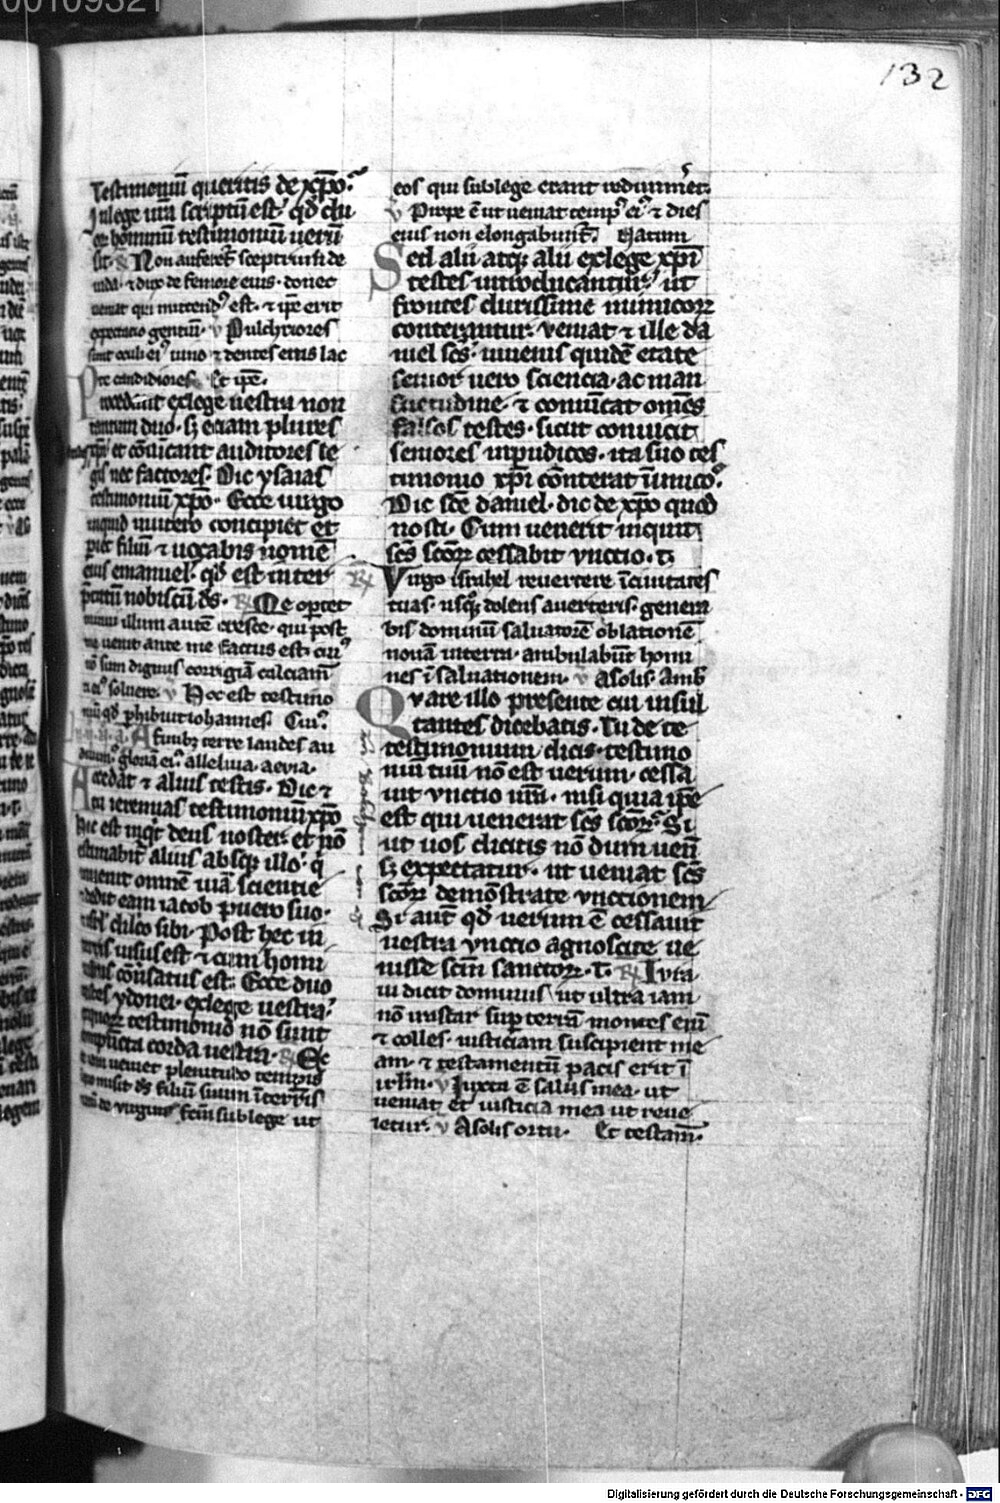 132
Testimoniū queritis de xp̄o.
In lege ur̄a scriptū est qd̓ du
oꝝ hominū testimoniū uerū
sit. Non auferet̓ sceptrū de
iuda ⁊ dux de femore eius donec
ueniat qui mittendꝰ est ⁊ ip̄e erit
expectatio gentiū. v Pulchriores
sunt oculi eiꝰ uino ⁊ dentes eius lac
te candidiores. Et ip̄e.
Procedant ex lege uestra non
tantum duo. sꝫ etiam plures
testes xp̄i et cōuincant auditores le
gis nec factores. Dic ysaias
testimoniū xp̄o. Ecce uirgo
inquid in utero concipiet et
pariet filiū ⁊ uocabis nomē
eius emanuel. qd̓ est inter
p̄tatū nobiscū ds̄. ℟ Me oportet
minui illum autē cresce. qui post
me uenit ante me factus est. cuiꝰ
nō sum dignus corrigiā calciam̄
ti eiꝰ soluere. v Hoc est testimo
niū qd̓ phibuit iohannes. Cuiꝰ.
A finibꝫ terre laudes au
diuimꝰ gloriā eiꝰ alleluia. aeuia.
Accedat ⁊ alius testis. Dic ⁊
tu ieremias testimoniū xp̄o
Hic est inqt̓ deus noster et nō
estimabit̓ alius absqꝫ illo. q̓
inuenit omnē uiā scientie
⁊ dedit eam iacob puero suo.
⁊ isrl̄ dilco sibi. Post hec in
terris uisus est ⁊ cum homi
nibus cōuersatus est. Ecce duo
testes ydonei. ex lege uestra.
ex quoꝝ testimonio nō sunt
compūcta corda uestra. ℟ Ec
ce iam uenit plenitudo temporis
in quo misit ds̄ filiū suum ī terris
natū de uirgine factū sub lege ut
eos qui sub lege erant redimeret.
v Prope ē ut ueniat tempꝰ eiꝰ ⁊ dies
eius non elongabunt̓. Natum
Sed alii atqꝫ alii ex lege xp̄i
testes introducantur. ut
frontes durissime inimicoꝝ
conterantur. Veniat ⁊ ille da
niel sc̄s. iuuenis quidē etate
senior uero sciencia. ac man
suetudine. ⁊ conuīcat omēs
falsos testes. sicut conuicit
seniores inpudicos. ita suo tes
timonio xp̄i cōterat inimicoꝝ.
Dic sc̄e daniel. dic de xp̄o quod
nosti. Cum uenerit inquit
sc̄s sc̄oꝝ cessabit vnctio. t̄
℟ Virgo israhel reuertere ī ciuitates
tuas. usqꝫ dolens auerteris. genera
bis dominū saluatorē oblationē
nouā in terra. ambulabūt homi
nes ī saluationem. v A solis. Amb
Quare illo presente cui insul
tantes dicebatis. Tu de te
testimonium dicis. testimo
niū tuū nō est uerum. cessa
uit vnctio ur̄a. nisi quia ip̄e
est qui uenerat sc̄s sc̄oꝝ. Si
ut uos dicitis nō dum uenit
sꝫ expectatur. ut ueniat sc̄s
sc̄oꝝ demōstrate vnctionem
Si aut̄ qd̓ uerum ē cessauit
uestra vnctio agnoscite ue
nisse sc̄m sanctoꝝ. T. ℟ Iura
ui dicit dominus ut ultra iam
nō irascar sup terrā montes eni̅
⁊ colles. iusticiam suscipient me
am. ⁊ testamentū pacis erit ī
irl̄m. v Iuxta ē salus mea. ut
ueniat et iusticia mea ut reue
letur. v A solis ortu. Et testam̄.
Digitalisierung gefördert durch die Deutsche Forschungsgemeinschaft - DFG